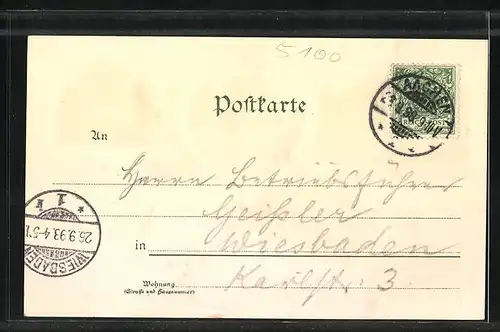 5100
Postkarte
An
Herrn Betriebsführer
Geißler
in Wiesbaden
Karlstr. 3.
Wohnung
(Straße und Hausnummer)
* 1 k *
26.9.93.4-5
WIESBADEN